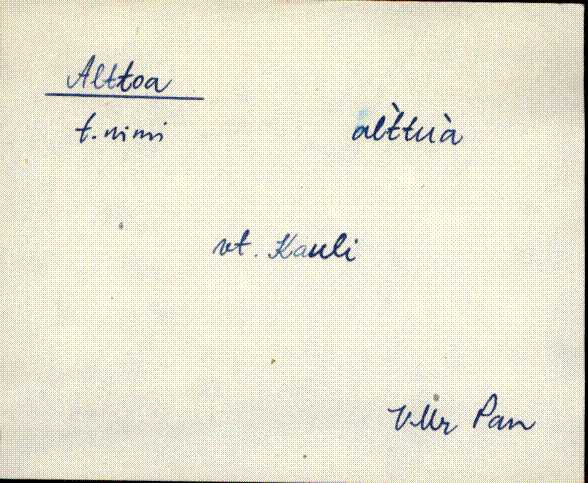 Alttoa
t.nimi àl̀ttuà
vt. Kauli
VMr Pan